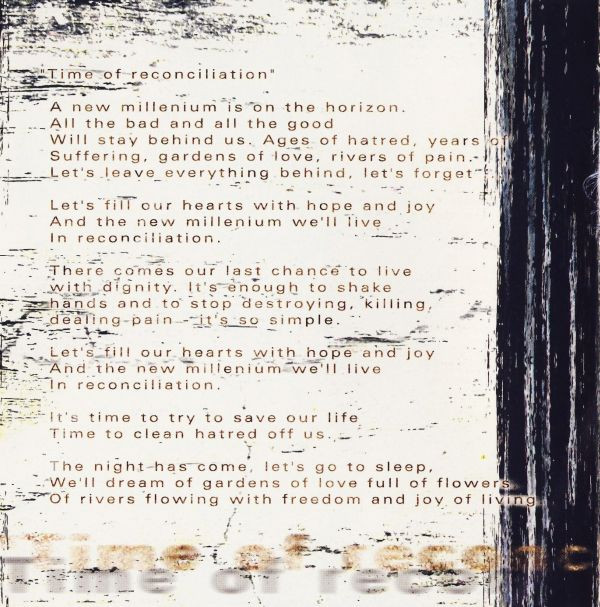 "Time of reconciliation"
A new millenium is on the horizon.
All the bad and all the good
Will stay behind us. Ages of hatred, years of
Suffering, gardens of love, rivers of pain.
Let's leave everything behind, let's forget ...
Let's fill our hearts with hope and joy
And the new millenium we'll live
In reconciliation.
There comes our last chance to live
with dignity. It's enough to shake
hands and to stop destroying, killing,
dealing pain - it's so simple.
Let's fill our hearts with hope and joy
And the new millenium we'll live
In reconciliation.
It's time to try to save our life
Time to clean hatred off us.
The night has come, let's go to sleep,
We'll dream of gardens of love full of flowers
Of rivers flowing with freedom and joy of living
Time of reconc
Time of reco